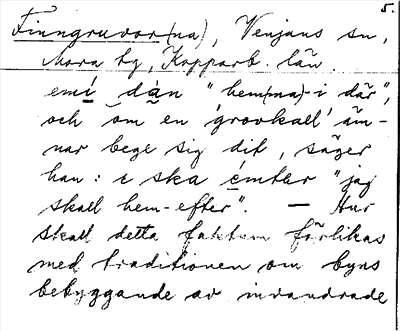 5.
Finngruvor(na), Venjans sn,
Mora tg, Kopparb. län.
emí dän "hem(ma)-i där",
och om en 'grovkall' äm-
nar bege sig dit, säger
han: e ska emtler "jag
skall hem-efter". — Hur
skall detta faktum förlikas
med traditionen om byns
bebyggande av invandrade